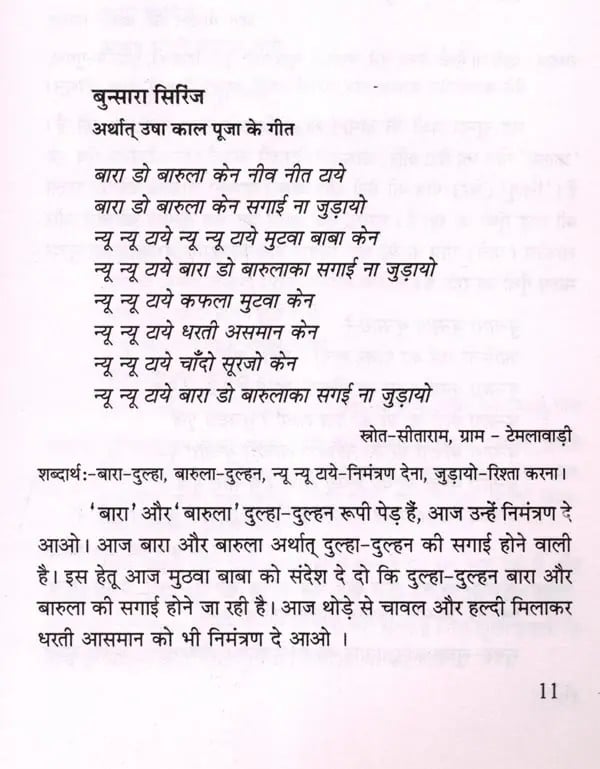 बुन्सारा सिरिंज
अर्थात् उषा काल पूजा के गीत
बारा डो बारुला केन नीव नीत टाये
बारा डो बारुला केन सगाई ना जुड़ायो
न्यू न्यू टाये न्यू न्यू टाये मुटवा बाबा केन
न्यू न्यू टाये बारा डो बारुलाका सगाई ना जुड़ायो
न्यू न्यू टाये कफला मुटवा केन
न्यू न्यू टाये धरती असमान केन
न्यू न्यू टाये चाँदो सूरजो केन
न्यू न्यू टाये बारा डो बारुलाका सगई ना जुड़ायो
स्त्रोत-सीताराम, ग्राम - टेमलावाड़ी
शब्दार्थ:-बारा-दुल्हा, बारुला-दुल्हन, न्यू न्यू टाये-निमंत्रण देना, जुड़ायो-रिश्ता करना।
'बारा' और 'बारुला' दुल्हा-दुल्हन रूपी पेड़ हैं, आज उन्हें निमंत्रण दे
आओ। आज बारा और बारुला अर्थात् दुल्हा-दुल्हन की सगाई होने वाली
है। इस हेतू आज मुठवा बाबा को संदेश दे दो कि दुल्हा-दुल्हन बारा और
बारुला की सगाई होने जा रही है। आज थोड़े से चावल और हल्दी मिलाकर
धरती आसमान को भी निमंत्रण दे आओ ।
11